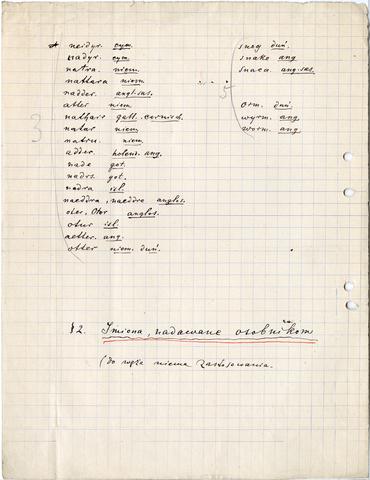 neidyr. cym.
nadyr. cym.
natra. niem.
nattara niem.
nadder. angl-sas.
atter niem.
nathair gall. cornisch.
natar niem.
natru. niem.
adder. holend. ang.
nade got.
nadrs. got.
nadra isl.
naeddra, naeddre anglos.
oter. Otor anglos.
otur isl.
aetter. ang.
otter niem. duń.
3
snog duń.
snake ang.
snaca ang-sas.
5
orm. duń.
wyrm. ang.
worm. ang.
§2. Imiona, nadawane osobnikom
(do węża niema zastosowania.